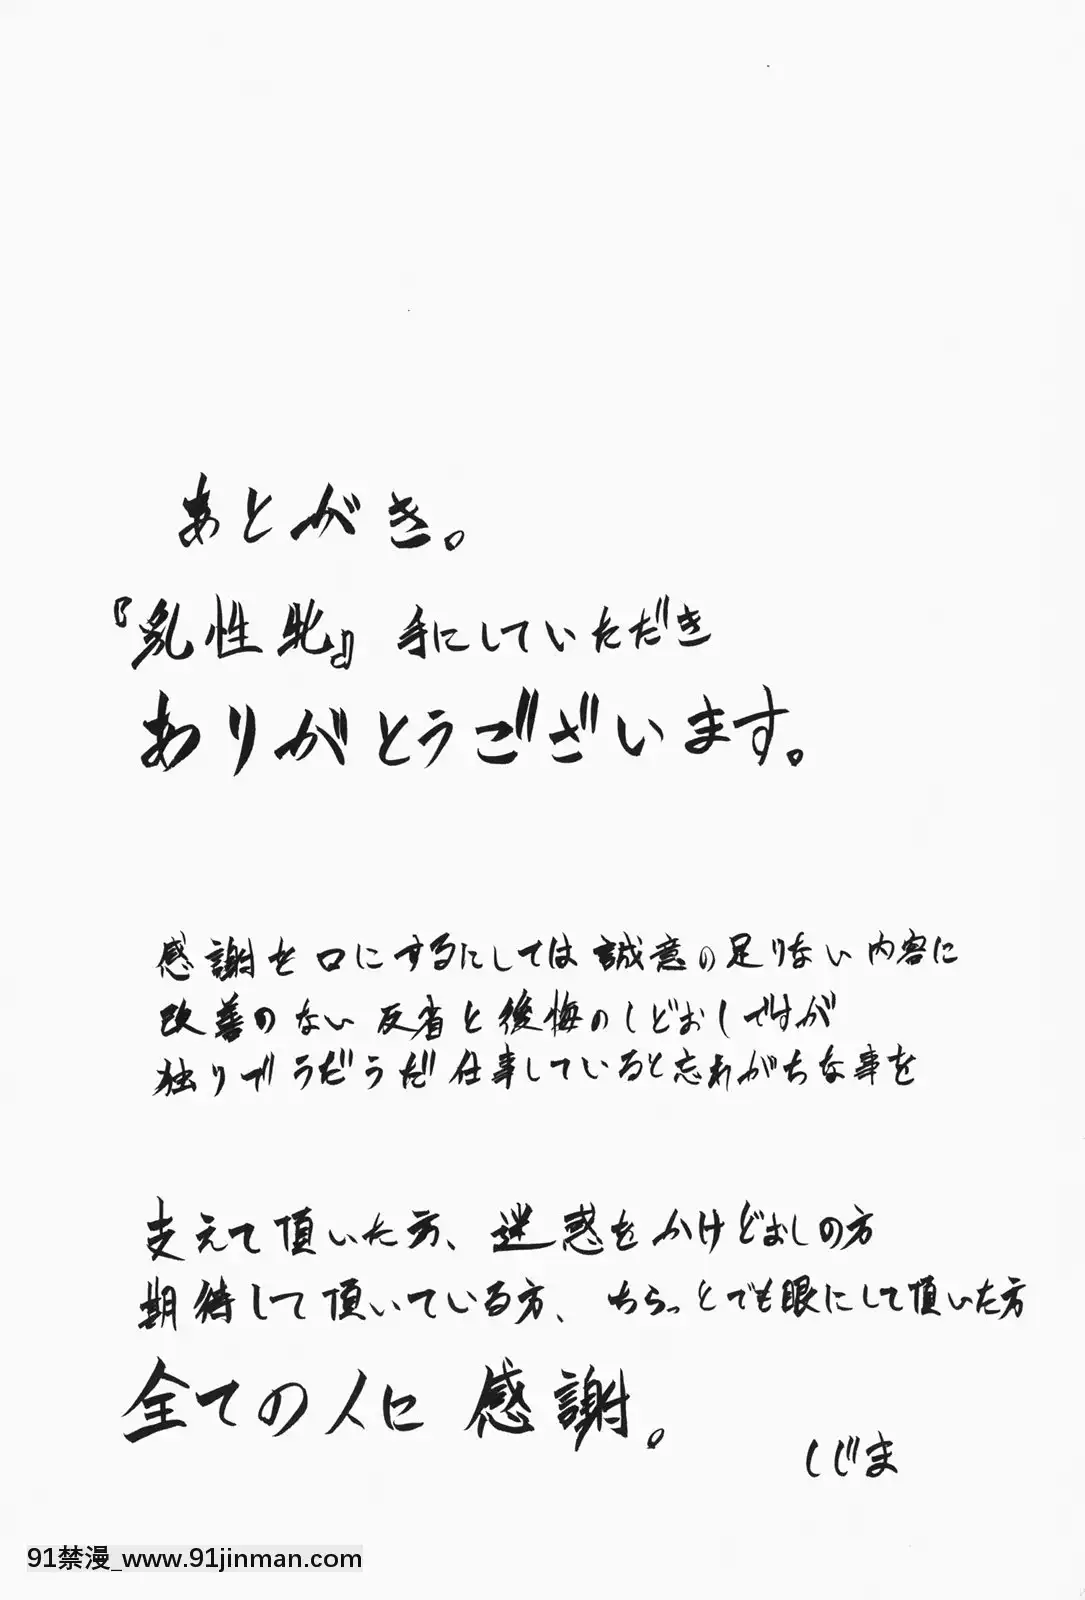 あとがき。
『乳性牝』手にしていただき
ありがとうございます。
感謝を口にするにしては誠意の足りない内容に
改善のない反省と後悔のしどおしですが
独りでうだうだ仕事していると忘れがちな事を
支えて頂いた方、迷惑をかけどおしの方
期待して頂いている方、ちらっとでも眼にして頂いた方
全ての人に感謝。
しじま
91禁漫_www.91jinman.com